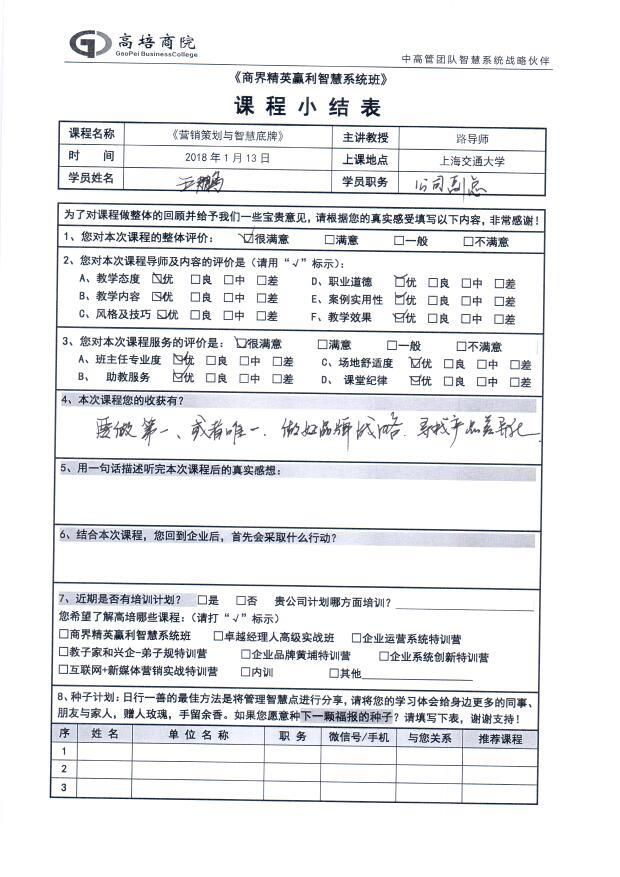 高培商院
GaoPei BusinessCollege
中高管团队智慧系统战略伙伴
《商界精英赢利智慧系统班》
课程小结表
课程名称 《营销策划与智慧底牌》 主讲教授 路导师
时 间 2018年1月13日 上课地点 上海交通大学
学员姓名 学员职务 公司副总
为了对课程做整体的回顾并给予我们一些宝贵意见,请根据您的真实感受填写以下内容,非常感谢!
1、您对本次课程的整体评价: ☑很满意 □满意 □一般 □不满意
2、您对本次课程导师及内容的评价是(请用“√”标示):
A、教学态度 ☑优 □良 □中 □差 D、职业道德 ☑优 □良 □中 □差
B、教学内容 ☑优 □良 □中 □差 E、案例实用性 ☑优 □良 □中 □差
C、风格及技巧 ☑优 □良 □中 □差 F、教学效果 ☑优 □良 □中 □差
3、您对本次课程服务的评价是: ☑很满意 □满意 □一般 □不满意
A、班主任专业度 ☑优 □良 □中 □差 C、场地舒适度 ☑优 □良 □中 □差
B、 助教服务 ☑优 □良 □中 □差 D、 课堂纪律 ☑优 □良 □中 □差
4、本次课程您的收获有?
要做第一、或者唯一.做好品牌战略.寻找产品差异化.
5、用一句话描述听完本次课程后的真实感想:
6、结合本次课程,您回到企业后,首先会采取什么行动?
7、近期是否有培训计划? □是 □否 贵公司计划哪方面培训?
您希望了解高培哪些课程:(请打“√”标示)
□商界精英赢利智慧系统班 □卓越经理人高级实战班 □企业运营系统特训营
□教子家和兴企-弟子规特训营 □企业品牌黄埔特训营 □企业系统创新特训营
□互联网+新媒体营销实战特训营 □内训 □其他
8、种子计划:日行一善的最佳方法是将管理智慧点进行分享,请将您的学习体会给身边更多的同事、
朋友与家人,赠人玫瑰,手留余香。如果您愿意种下一颗福报的种子?请填写下表,谢谢支持!
序 姓 名 单 位 名 称 职 务 微信号/手机 与您关系 推荐课程
1
2
3